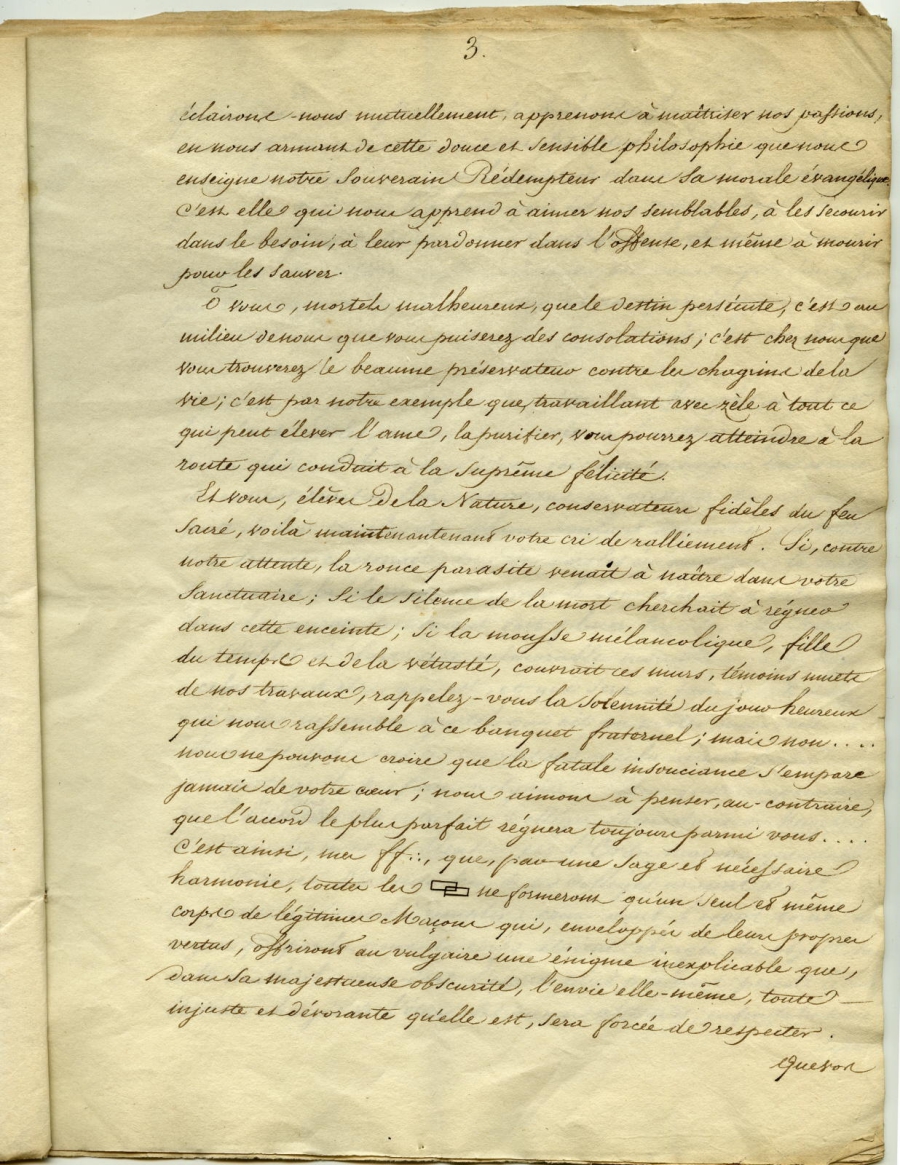 3.
éclairons-nous mutuellement, apprenons à maîtriser nos passions,
en nous armant de cette douce et sensible philosophie que nous
enseigne notre Souverain Rédempteur dans sa morale évangélique.
C'est elle qui nous apprend à aimer nos semblables, à les secourir
dans le besoin, à leur pardonner dans l'offense, et même à mourir
pour les sauver.
Ô vous, mortels malheureux, que le destin persécute, c'est au
milieu de nous que vous puiserez des consolations; c'est chez nous que
vous trouverez le beaume préservateur contre les chagrins de la
vie; c'est par notre exemple que, travaillant avec zèle à tout ce
qui peut élever l'ame, la purifier, vous pourrez atteindre à la
route qui conduit à la Suprême félicité.
Et vous, élèves de la Nature, conservateurs fidèles du feu
Sacré, voilà maintenantenant votre cri de ralliement. Si, contre
notre attente, la ronce parasite venait à naître dans votre
Sanctuaire; Si le Silence de la mort cherchait à régner
dans cette enceinte; Si la mousse mélancolique, fille
du temps et de la vétusté, couvrait ces murs, témoins muets
de nos travaux, rappelez-vous la Solennité du jour heureux
qui nous rassemble à ce banquet fraternel; mais non....
nous ne pouvons croire que la fatale insouciance s'empare
jamais de votre cœur; nous aimons à penser, au-contraire,
que l'accord le plus parfait régnera toujours parmi vous....
C'est ainsi, mes ff∴, que, par une Sage et nécessaire
harmonie, toutes les ne formeront qu'un seul et même
corps de légitimes Maçons qui, enveloppés de leurs propres
vertus, offriront au vulgaire une énigme inexplicable que,
dans Sa majestueuse obscurité, l'envie elle-même, toute
injuste et dévorante qu'elle est, sera forcée de respecter.